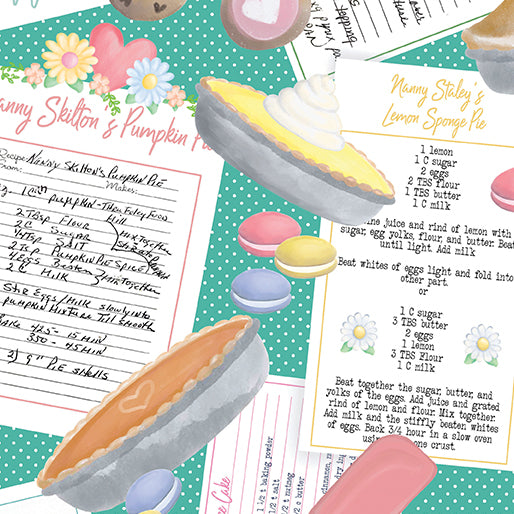 Nanny Skilton's Pumpkin
Recipe: Nanny Skilton's Pumpkin Pie
From:
Makes:
pumpkin - Then Foley Food
Mill
2 Tbsp Flour
2 C Sugar
Salt
2 Tsp Pumpkin Pie Spice
4 Eggs Beaten
2 C Milk
Mix Together
Mix Together
Stir Eggs/Milk slowly into
pumpkin Mixture Till Smooth
Bake 425 - 15 Min
350 - 45 Min
2) 9" Pie Shells
Nanny Staley's
Lemon Sponge Pie
1 lemon
1 C sugar
2 eggs
2 TBS flour
1 TBS butter
1 C milk
juice and rind of lemon with
sugar, egg yolks, flour, and butter. Beat
until light. Add milk
Beat whites of eggs light and fold into
other part.
or
1 C sugar
3 TBS butter
2 eggs
1 lemon
3 TBS Flour
1 C milk
Beat together the sugar, butter, and
yolks of the eggs. Add juice and grated
rind of lemon and flour. Mix together.
Add milk and the stiffly beaten whites
of eggs. Back 3/4 hour in a slow oven
one crust.
Cake
1/2 t baking powder
1/2 t nutmeg